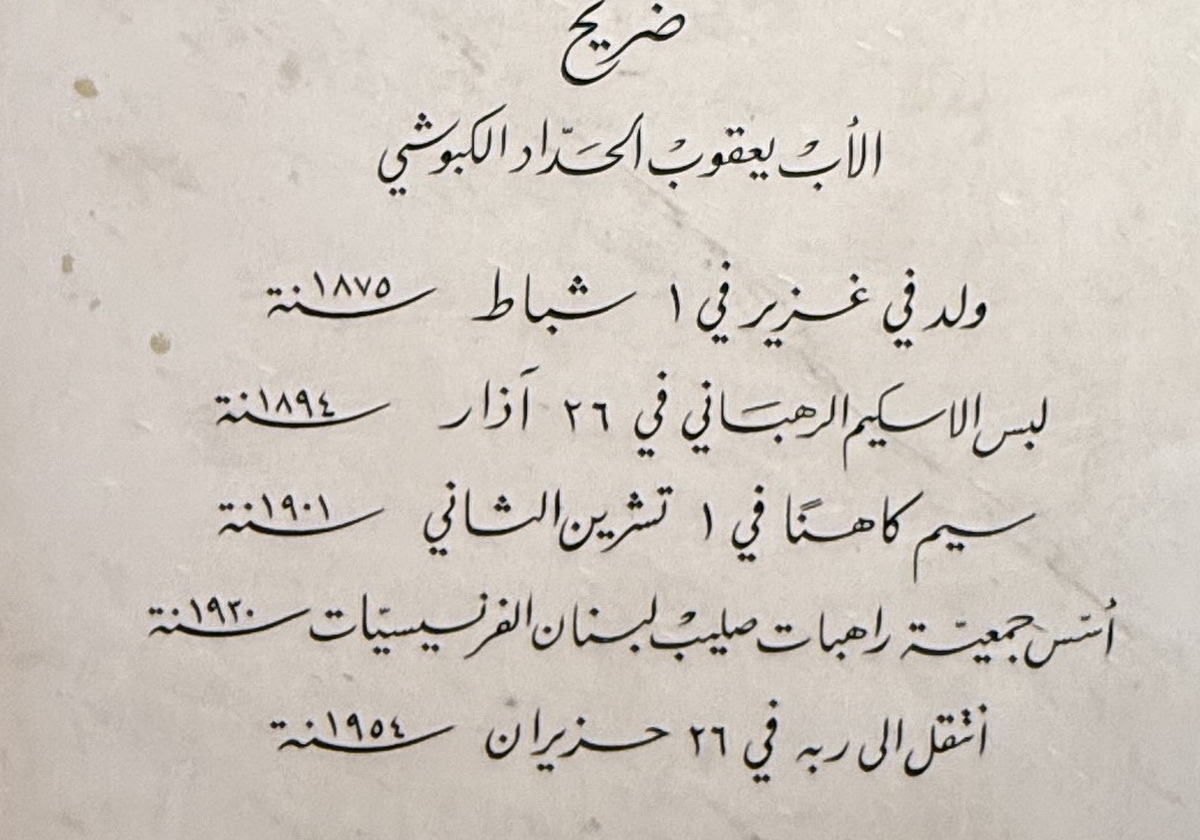 ضريح
الأبْ يعقوبْ الحَدّاد الكبوشي
ولد في غزير في ١ شباط سنة ١٨٧٥
لبس الاسكيم الرهبَاني في ٢٦ آذار سنة ١٨٩٤
سيم كاهنًا في ١ تشرين الثاني سنة ١٩٠١
أسّس جمعيّة راهبات صليبْ لبنان الفرنسيسيّات سنة ١٩٣٠
أنتقل الى ربه في ٢٦ حزيران سنة ١٩٥٤